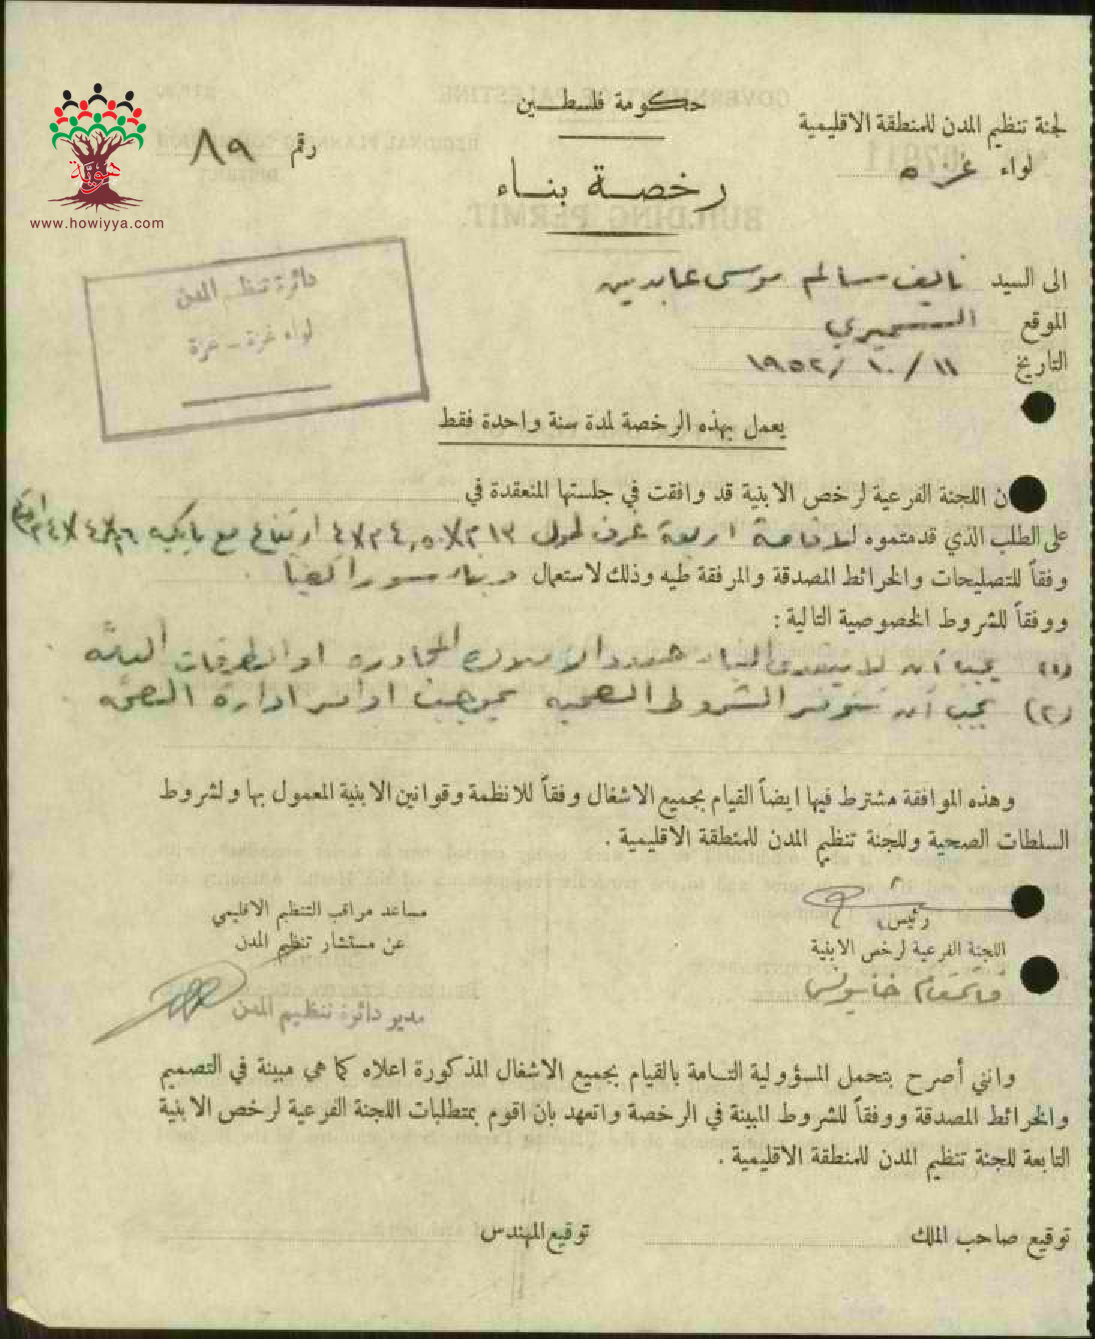 حكومة فلسطين
لجنة تنظيم المدن للمنطقة الاقليمية
لواء غزه
رقم ٨٩
هوية
www.howiyya.com
رخصة بناء
دائرة تنظيم المدن
لواء غزة - غزة
الى السيد نايف سالم موسى عابدين
الموقع
التاريخ ١١ / ١٠ / ١٩٥٢
يعمل بهذه الرخصة لمدة سنة واحدة فقط
ن اللجنة الفرعية لرخص الابنية قد وافقت في جلستها المنعقدة في
على الطلب الذي قدمتموه لاقامة اربعة غرف لطول ارتفاع مع
وفقاً للتصليحات والخرائط المصدقة والمرفقة طيه وذلك لاستعمال
ووفقاً للشروط الخصوصية التالية :
(١) يجب أن لا يتعدى البناء حدود الاملاك المجاورة او الطرقات العامة
(٢) يجب أن تتوفر الشروط الصحيه بموجب اوامر ادارة الصحه
وهذه الموافقة مشترط فيها ايضاً القيام بجميع الاشغال وفقاً للانظمة وقوانين الابنية المعمول بها ولشروط
السلطات الصحية وللجنة تنظيم المدن للمنطقة الاقليمية .
رئيس
اللجنة الفرعية لرخص الابنية
قائمقام خانيونس
مساعد مراقب التنظيم الاقليمي
عن مستشار تنظيم المدن
مدير دائرة تنظيم المدن
وانني أصرح بتحمل المسؤولية التامة بالقيام بجميع الاشغال المذكورة اعلاه كما هي مبينة في التصميم
والخرائط المصدقة ووفقاً للشروط المبينة في الرخصة واتعهد بان اقوم بمتطلبات اللجنة الفرعية لرخص الابنية
التابعة للجنة تنظيم المدن للمنطقة الاقليمية .
توقيع صاحب الملك
توقيع المهندس